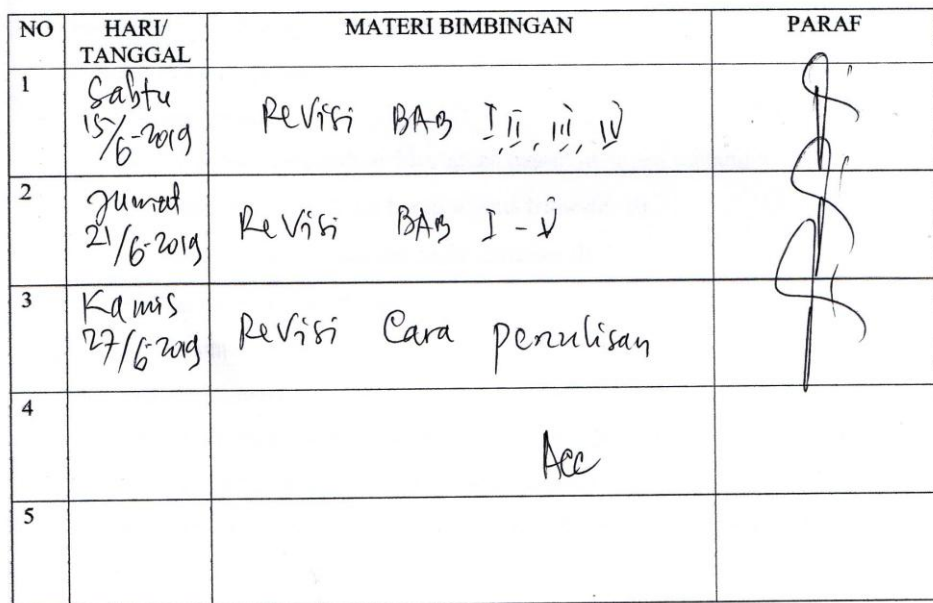 NO HARI/ MATERI BIMBINGAN PARAF
TANGGAL
1 Sabtu
15/6-2019 Revisi BAB I, II, III, IV
2 Jumat
21/6-2019 Revisi BAB I - V
3 Kamis
27/6-2019 Revisi Cara penulisan
4 Acc
5